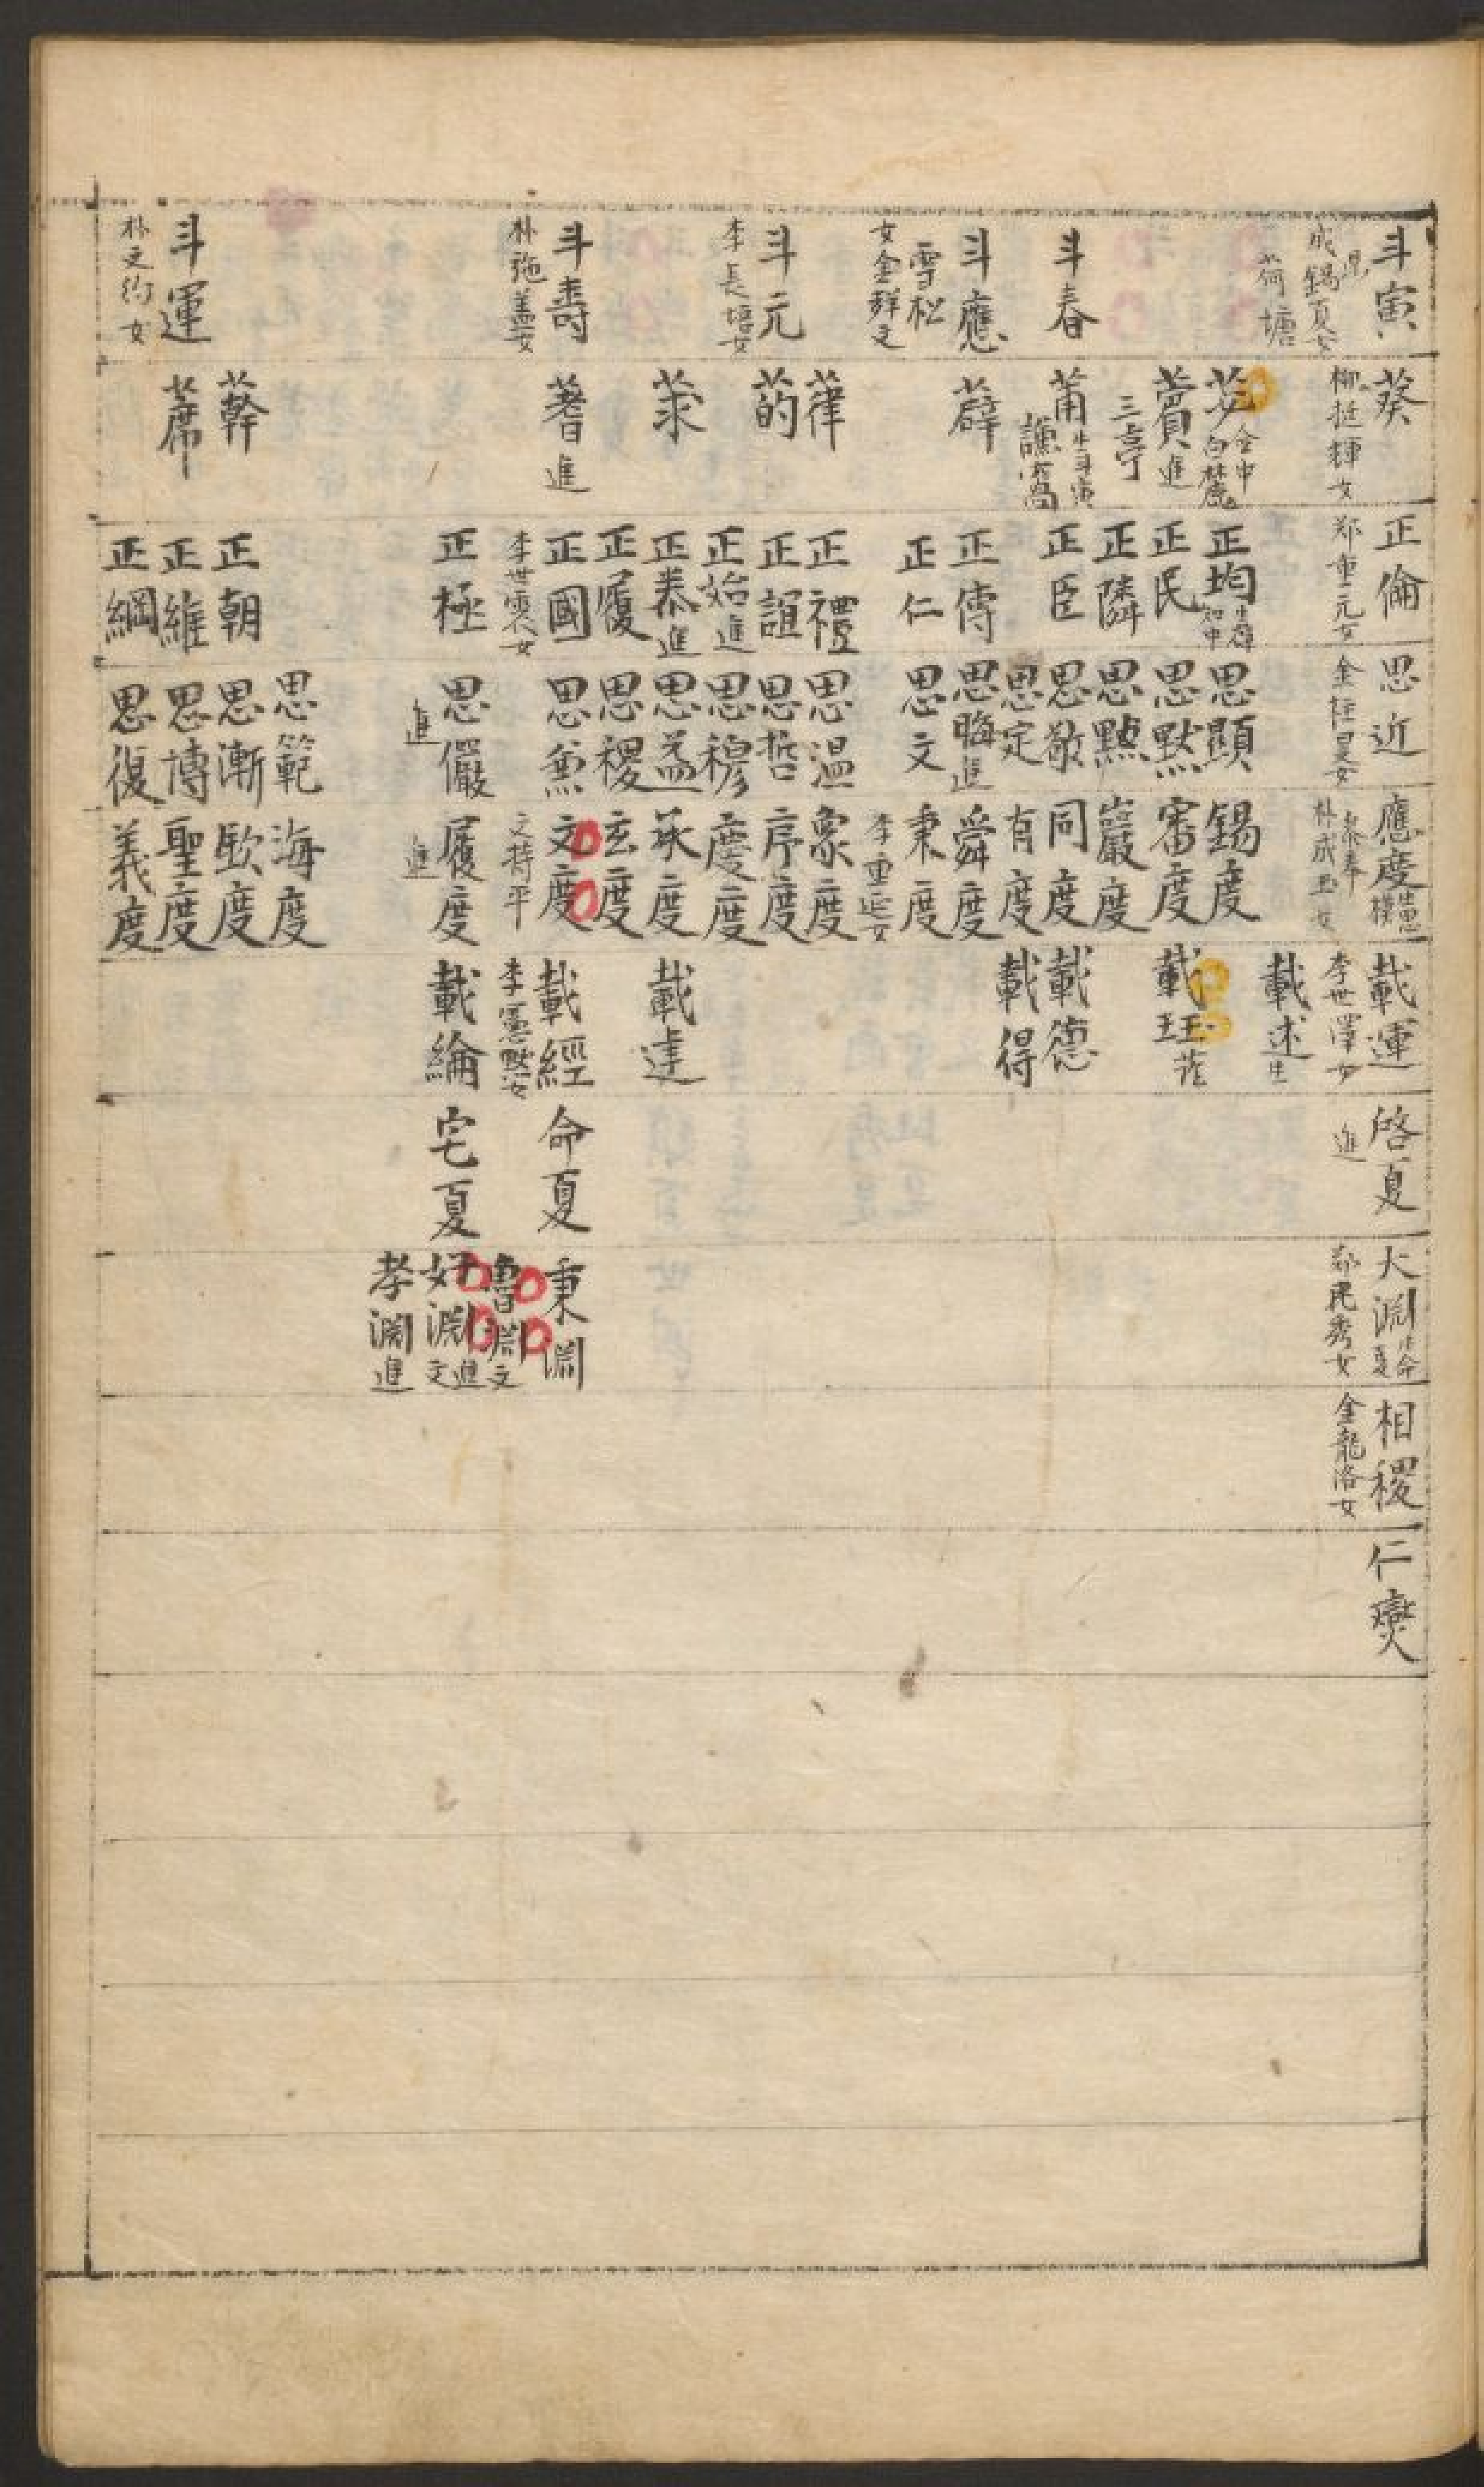 斗寅
成錫夏女
荷塘
斗春
斗應
雪松
女金群文
斗元
李長培女
斗壽
朴弛善女
斗運
朴文約女
葵
柳挺輝女
芟
白麓
蕡進
三亭
莆
生斗寅
薜
葎
菂
蓍進
蓆
正倫
郑重元女
正均
正民
正隣
正臣
正傳
正仁
正禮
正誼
正始進
正泰進
正履
正國
正極
正朝
正維
正綱
思近
思顯
思默
思黙
思敬
思定
思晦進
思文
思温
思哲
思穆
思益
思稷
思儼
進
思範
思漸
思博
思復
應度
朴成玉女
錫度
審度
巖度
同度
有度
舜度
秉度
李重延女
象度
序度
慶度
承度
玄度
文度
文持平
履度
進
海度
歐度
聖度
義度
載運
李世澤女
載述生
載德
載得
載建
載經
李憲默女
載綸
啓夏
進
命夏
宅夏
大淵
郑民秀女
秉淵
魯淵文
好淵進文
孝淵進
相稷
金龍洛女
仁燮